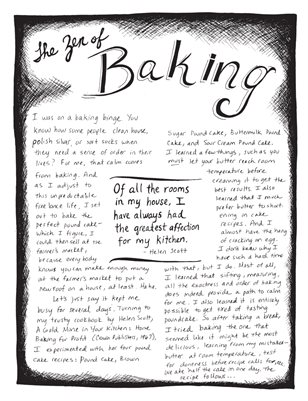 The Zen of
Baking
I was on a baking binge. You
know how some people clean house,
polish silver, or sort socks when
they need a sense of order in their
lives? For me, that calm comes
from baking. And
as I adjust to
this unpredictable
freelance life, I set
out to bake the
perfect pound cake-
which I figure, I
could then sell at the
farmer's market,
because everybody
knows you can make enough money
at the farmer's market to put a
new roof on a house, at least. Haha.
Let's just say it kept me
busy for several days. Turning to
my trusty cookbook by Helen Scott,
A Gold Mine in Your Kitchen: Home
Baking for Profit (Crown Publishers, 1967),
I experimented with her four pound
cake recipes: Pound Cake, Brown
Of all the rooms
in my house, I
have always had
the greatest affection
for my kitchen.
- Helen Scott
Sugar Pound Cake, Buttermilk Pound
Cake, and Sour Cream Pound Cake.
I learned a few things, such as you
must let your butter reach room
temperature before
creaming it to get the
best results. I also
learned that I much
prefer butter to short-
ening in cake
recipes. And I
almost have the hang
of cracking an egg.
I don't know why I
have such a hard time
with that, but I do. Most of all,
I learned that sifting, measuring,
all the exactness and order of baking
does indeed provide a path to calm
for me. I also learned it is entirely
possible to get tired of tasting
poundcake. So after taking a break,
I tried baking the one that
seemed like it might be the most
delicious, learning from my mistakes-
butter at room temperature, test
for doneness before recipe calls for,
ate half the cake in one day. The
recipe follows...